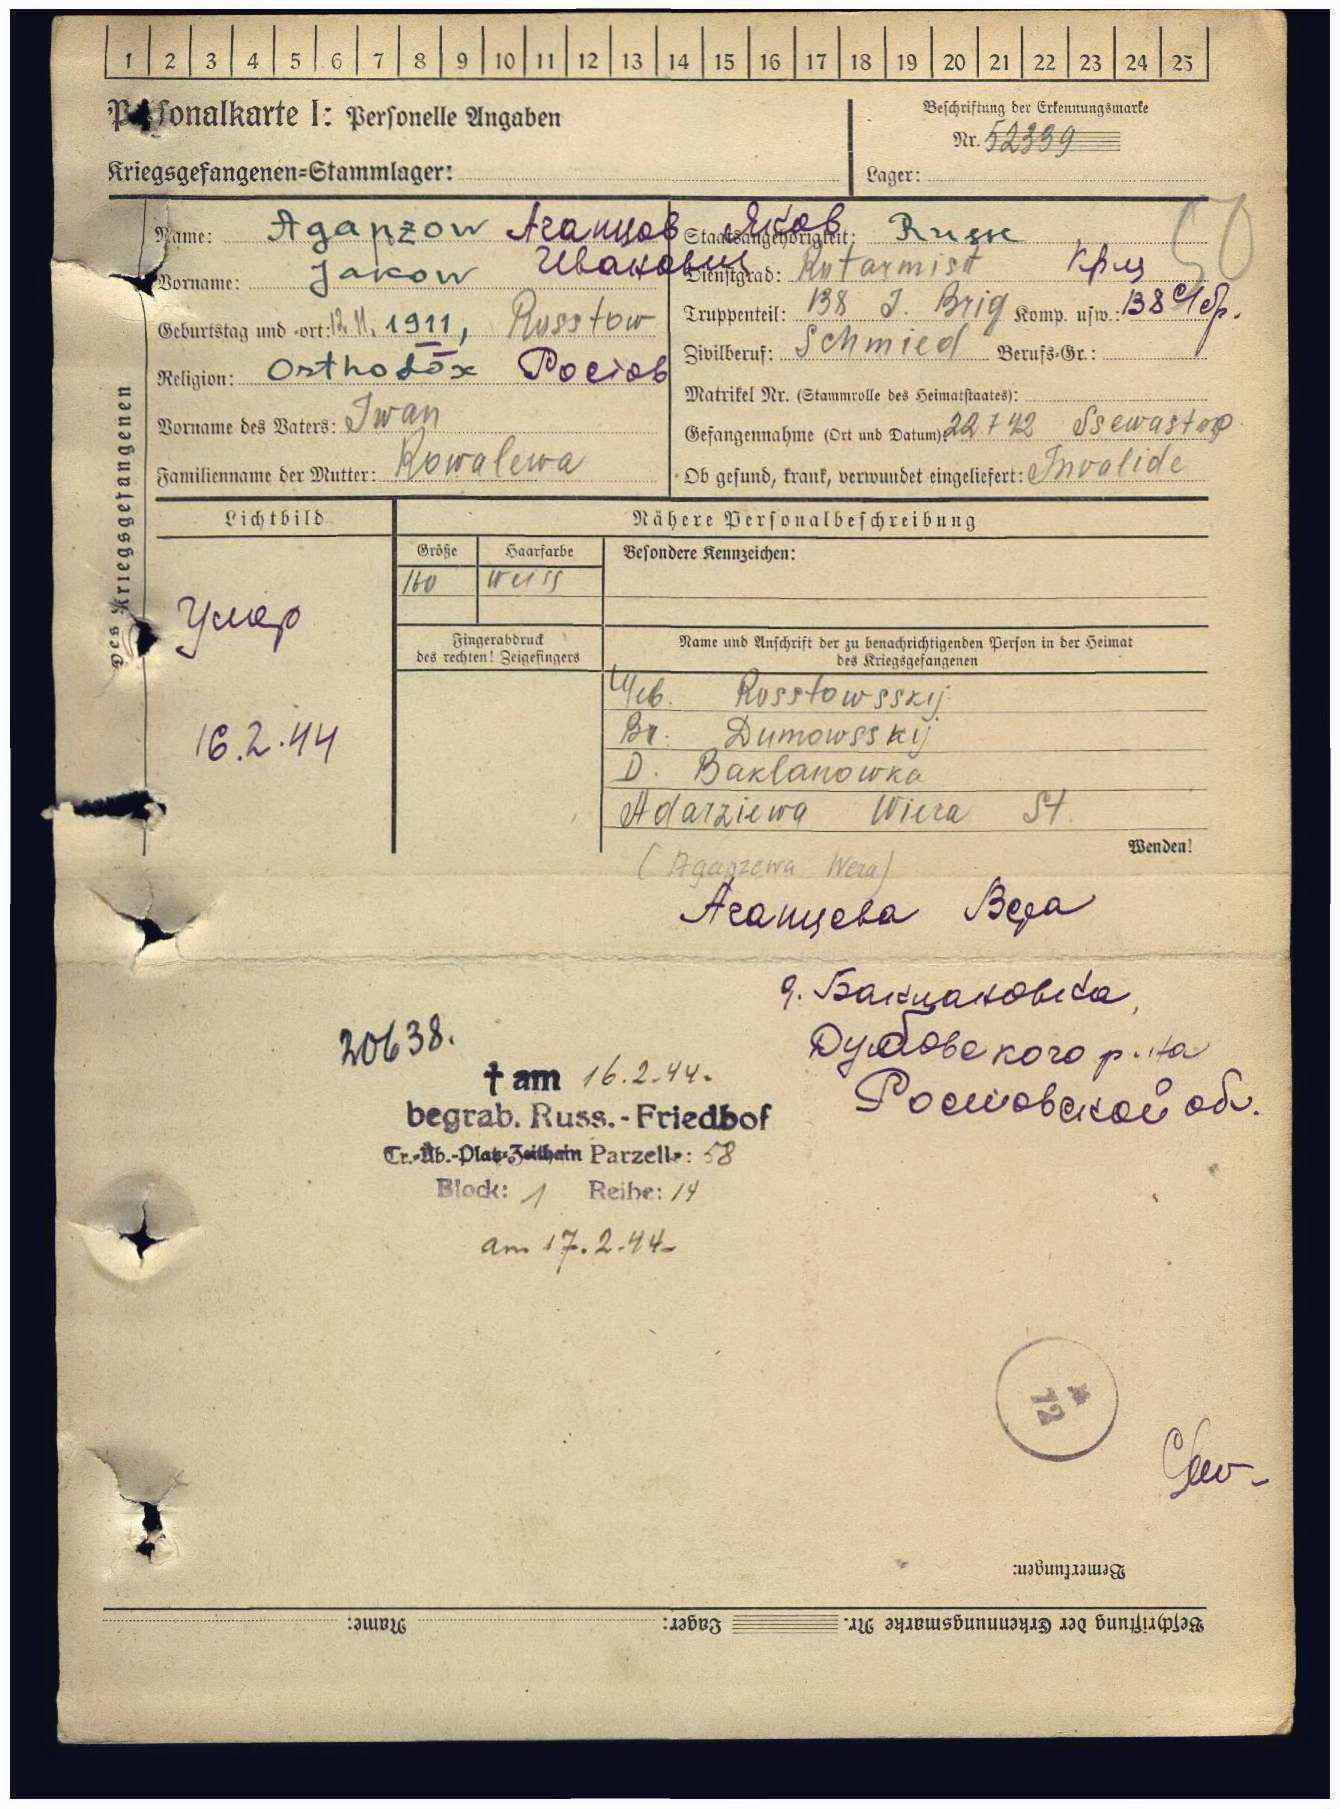 1 2 3 4 5 6 7 8 9 10 11 12 13 14 15 16 17 18 19 20 21 22 23 24 25
Personalkarte I: Personelle Angaben
Kriegsgefangenen=Stammlager:
Beschriftung der Erkennungsmarke
Nr. 52339
Lager:
Des Kriegsgefangenen
Name: Agapzow Агапцов Яков
Vorname: Jakow Иванович
Geburtstag und -ort: 12.11.1911, Rosstow
Religion: Orthodox Ростов
Vorname des Vaters: Iwan
Familienname der Mutter: Kowalewa
Staatsangehörigkeit: Russe
Dienstgrad: Rotarmist Кр-ц
Truppenteil: 138 I. Brig Komp. usw.: 138 с/бр.
Zivilberuf: Schmied Berufs-Gr.:
Matrikel Nr. (Stammrolle des Heimatstaates):
Gefangennahme (Ort und Datum): 22 7 42 Ssewastop
Ob gesund, krank, verwundet eingeliefert: Invalide
50
Lichtbild
Умер
16.2.44
Nähere Personalbeschreibung
Größe Haarfarbe Besondere Kennzeichen:
160 weiss
Fingerabdruck
des rechten! Zeigefingers
Name und Anschrift der zu benachrichtigenden Person in der Heimat
des Kriegsgefangenen
Geb. Rosstowsskij
Br. Dumowsskij
D. Baklanowka
Adarziewa Wiera St.
Wenden!
(Agapzewa Wera)
Агапцева Вера
д. Баклановка,
Дубовского р-на
Ростовской обл.
20638.
† am 16.2.44.
begrab. Russ.-Friedhof
Tr.-Üb.-Platz-Zeithain Parzelle: 58
Block: 1 Reihe: 14
am 17.2.44
72
Bemerkungen:
Beschriftung der Erkennungsmarke Nr. Lager: Name: